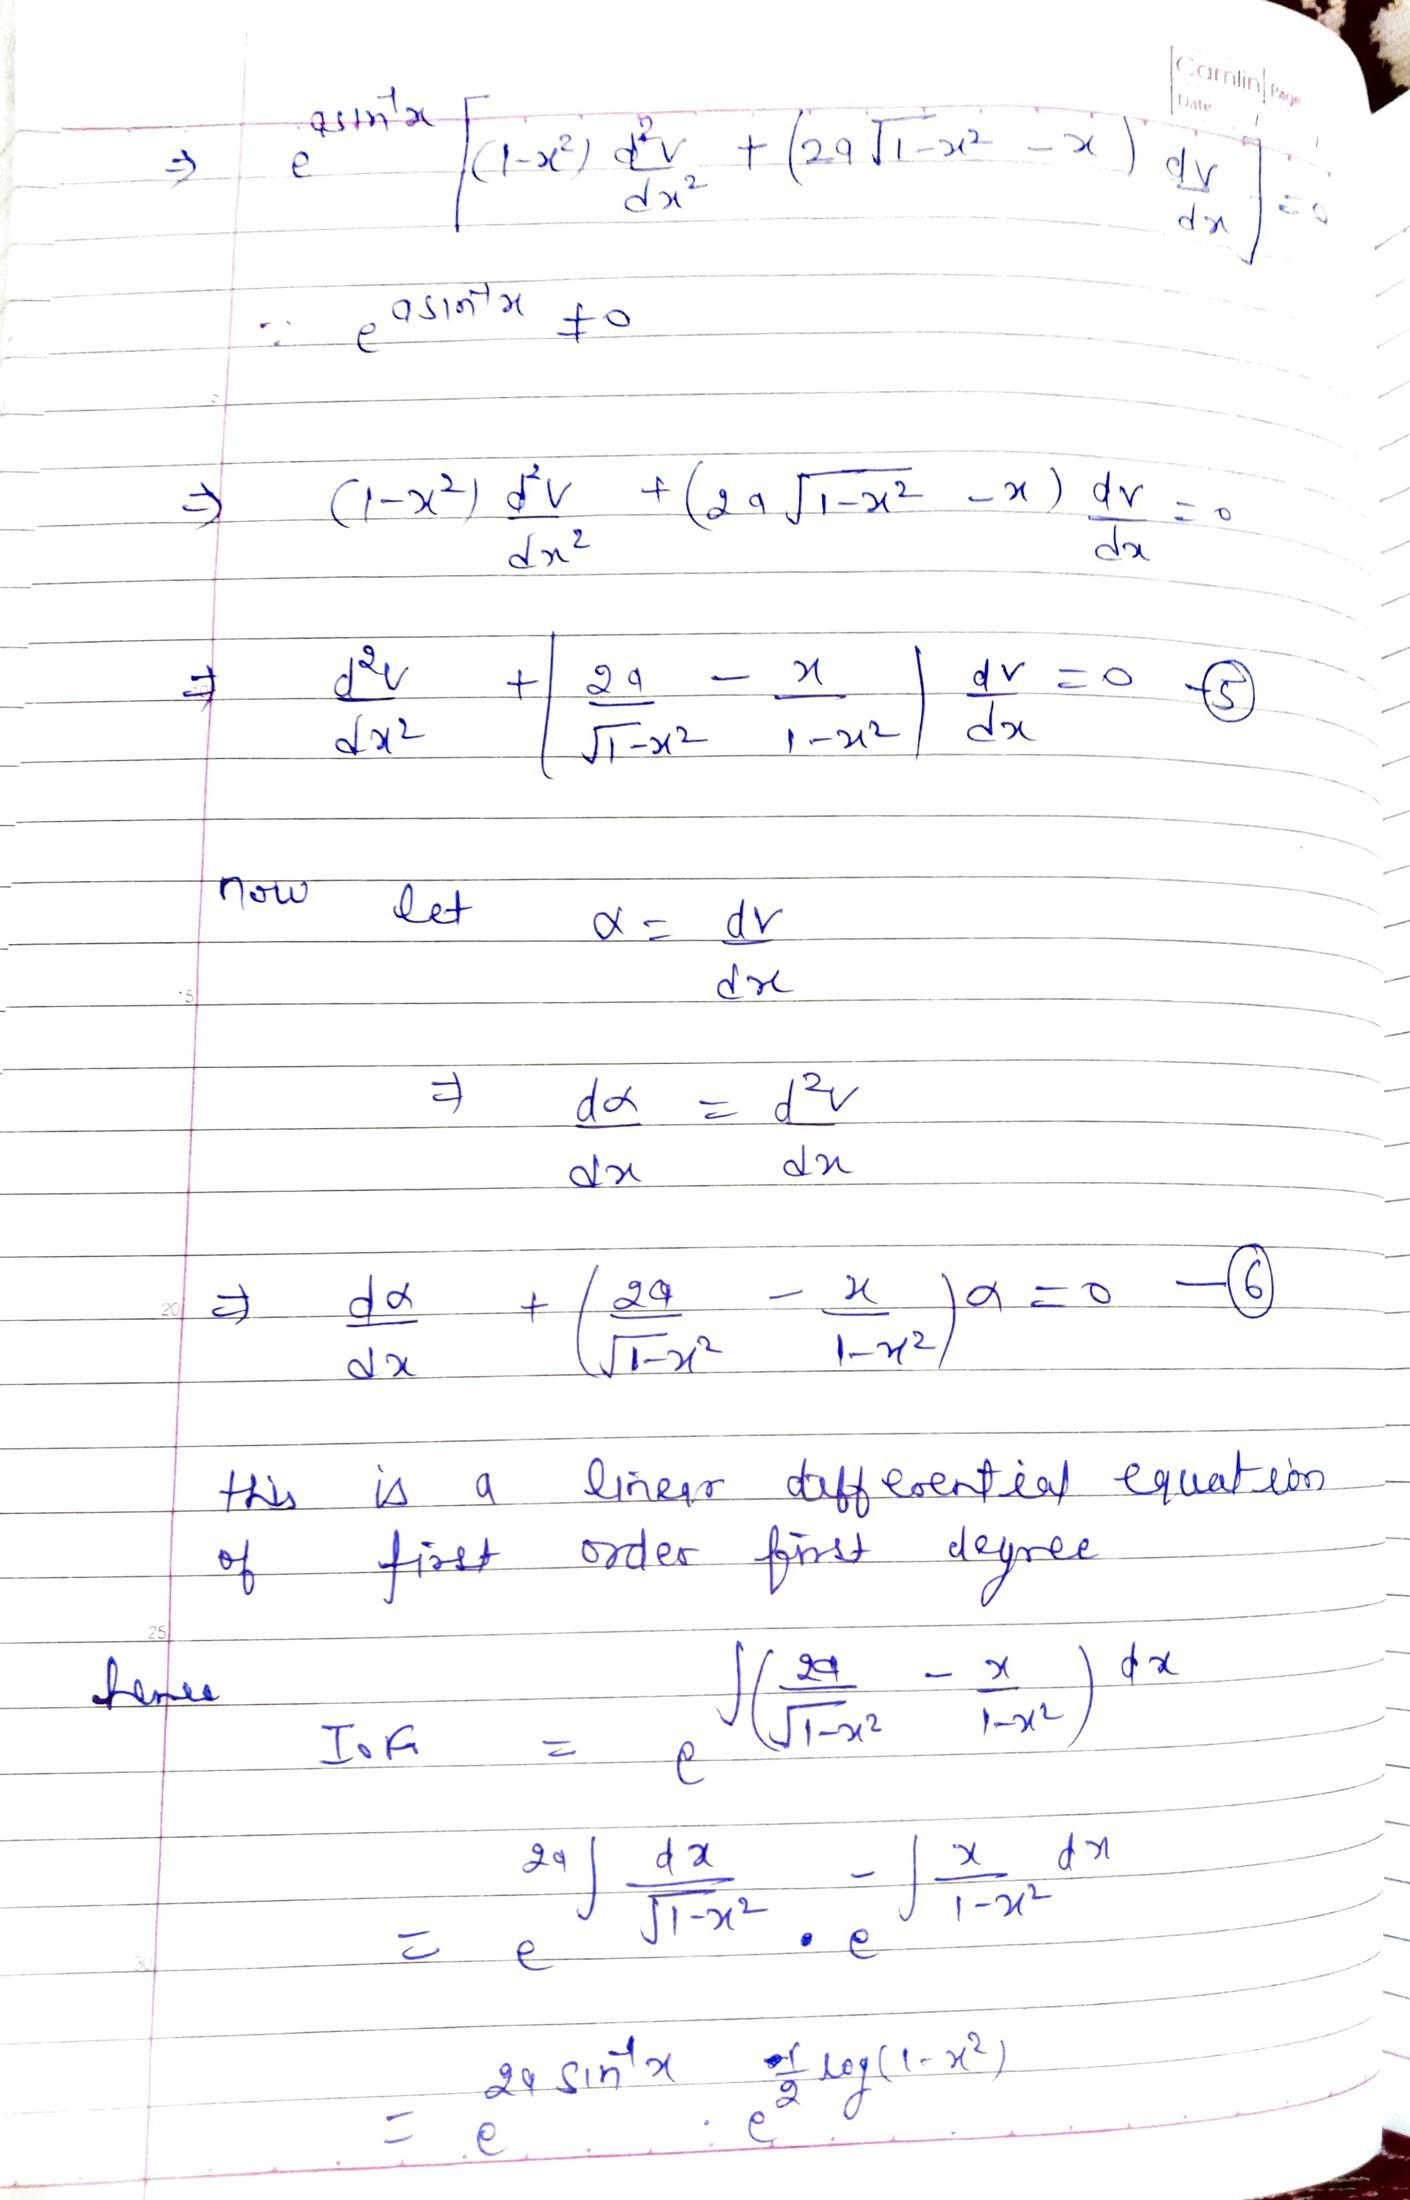 Camlin Page
Date
⇒ e^{a sin⁻¹x} [(1-x²) d²v/dx² + (2a√(1-x²) - x) dv/dx] = 0
∵ e^{a sin⁻¹x} ≠ 0
⇒ (1-x²) d²v/dx² + (2a√(1-x²) - x) dv/dx = 0
⇒ d²v/dx² + (2a/√(1-x²) - x/(1-x²)) dv/dx = 0 -⑤
now let α = dv/dx
⇒ dα/dx = d²v/dx
20 ⇒ dα/dx + (2a/√(1-x²) - x/(1-x²)) α = 0 -⑥
this is a linear differential equation
of first order first degree
25
hence
I.F. = e^{∫(2a/√(1-x²) - x/(1-x²)) dx}
= e^{2a∫dx/√(1-x²)} . e^{-∫x/(1-x²) dx}
= e^{2a sin⁻¹x} . e^{1/2 log(1-x²)}